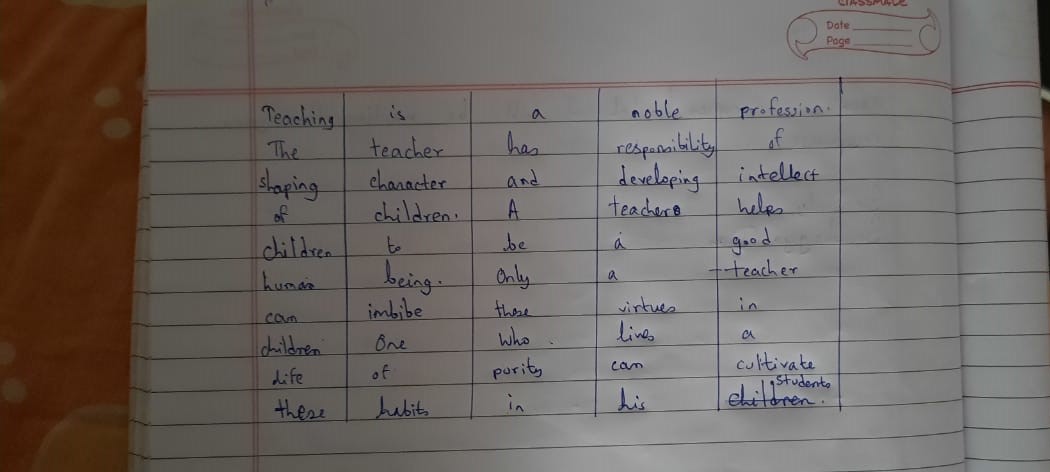 CLASSMATE
Date
Page
Teaching is a noble profession.
The teacher has responsibility of
shaping character and developing intellect
of children. A teacher helps
children to be a good
human being. Only a teacher
can imbibe these virtues in
children One who lives a
life of purity can cultivate
students
these habits in his children.